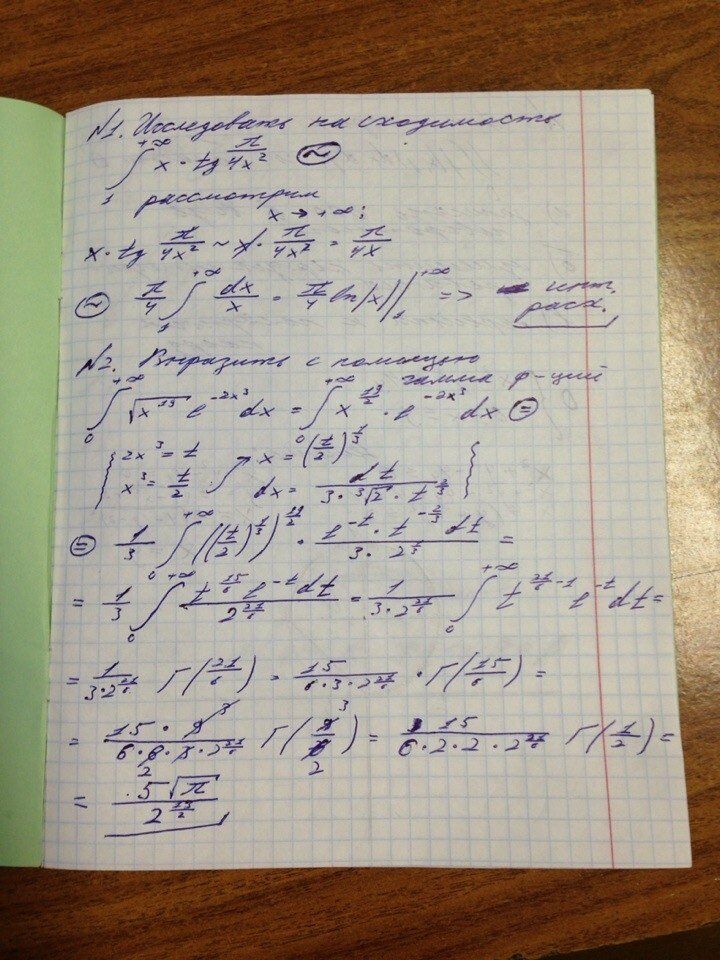 №1. Исследовать на сходимость
∫₁^{+∞} x · tg π/4x² (~)
рассмотрим
x → +∞:
x · tg π/4x² ~ x · π/4x² = π/4x
(~) π/4 ∫₁^{+∞} dx/x = π/4 ln|x| |₁^{+∞} => инт.
расх.
№2. Выразить с помощью
гамма ф-ций
∫₀^{+∞} √x¹³ e^{-2x³} dx = ∫₀^{+∞} x^{13/2} · e^{-2x³} dx (=)
2x³ = t x = (t/2)^{1/3}
x³ = t/2 dx = dt/(3 · ³√2 · t^{2/3})
(=) 1/3 ∫₀^{+∞} ((t/2)^{1/3})^{13/2} · (e^{-t} · t^{-2/3} dt)/(3 · 2^{1/3}) =
= 1/3 ∫₀^{+∞} (t^{15/6} e^{-t} dt)/2^{21/6} = 1/(3·2^{21/6}) ∫₀^{+∞} t^{21/6 -1} e^{-t} dt =
= 1/(3·2^{21/6}) Γ(21/6) = 15/(6·3·2^{21/6}) · Γ(15/6) =
= (15 · 9 3)/(6·6·3·2^{21/6} 2) Γ(9/6 3/2) = 15/(6·2·2·2^{21/6}) Γ(1/2) =
= 5√π/2^{13/2}